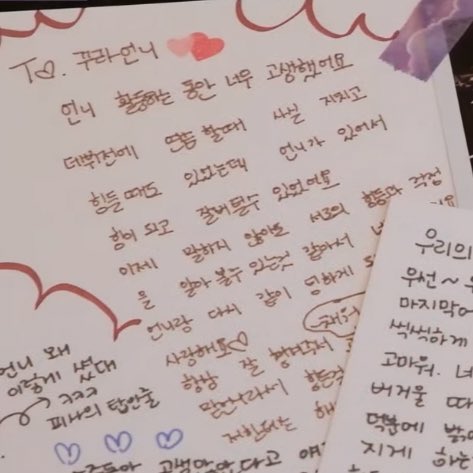 To. 꾸라언니
언니 활동하는 동안 너무 고생했어요
데뷔전에 연습 할때 사실 지치고
힘들때도 있었는데 언니가 있어서
힘이 되고 잘버틸수 있었어요
이제 말하지 않아도 서로의 힘듦과 걱정
을 알아 볼수 있는것 같아서
언니랑 다시 같이
사랑해요
항상 잘 챙겨주셔
만난나라서 힘든
언니 왜
이렇게 썼대
ㅋㅋㅋ
피사의 탑인줄
우리의
우선~
마지막
씩씩하게
고마워. 너
버거울 때
덕분에 밝
지게 하는